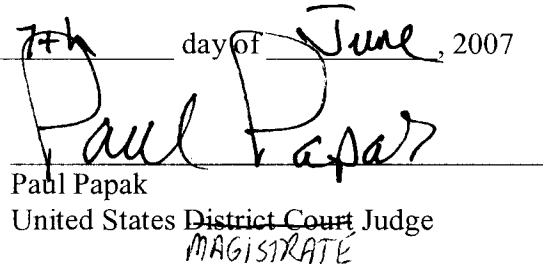 7th day of June, 2007
Paul Papak
Paul Papak
United States District Court Judge
MAGISTRATE